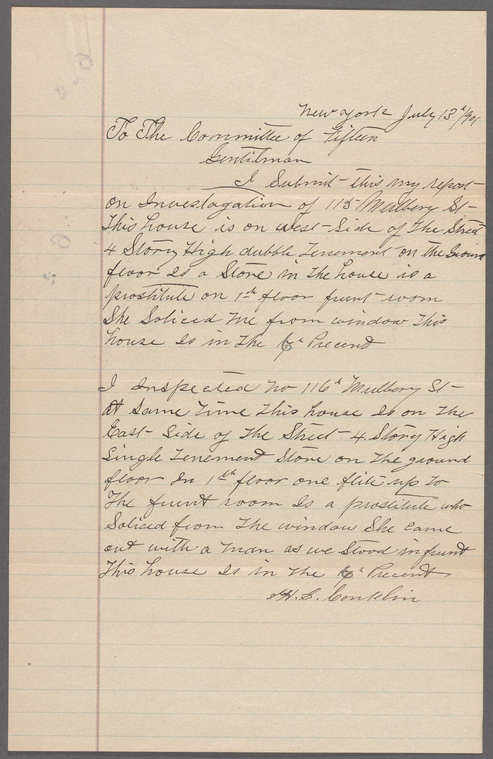 New York July 13th/1901
To The Committee of Fifteen
Gentilman
I Submit this my report
on Investagation of 115 Mulbery St
This house is on west Side of the Street
4 Story High dubble Tenement on the Ground
floor Is a Store In The house is a
prostitute on 1st floor frunt room
She Soliced me from window This
house Is in the 6th Precent
I Inspected No 116th Mulbery St
At Same Time This house Is on the
East Side of the Street 4 Story High
Single Tenement Store on the ground
floor In 1st floor one flite up To
The frunt room Is a prostitute who
Soliced from the window She came
out with a man as we Stood in frunt
This house Is in the 6th Precent
Conklin